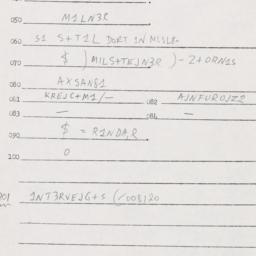 050 M1LN3R
060 S1 S+T1L DORT 1N M1SLR-
070 $ ) MILS+TEJN3R ) - Z+ORN1S
080 AXSAN$1
081 KREJC+M1/- 082 AJNFUROJZ2
083 - 084 -
090 $ = R1NDA,R
100 0
101 1NT3RVEJG+S (/008120